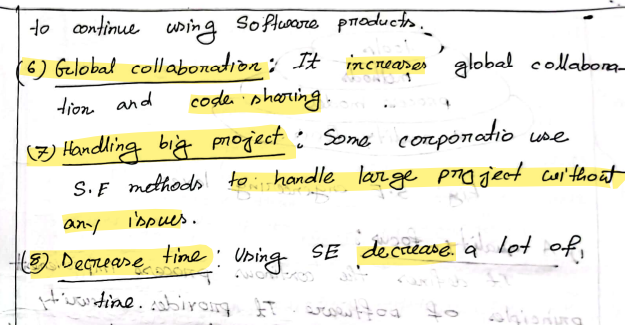 to continue using Software products.
(6) Global collaboration: It increases global collabora-
tion and code sharing.
(7) Handling big project: Some corporatio use
S.E methods to handle large project without
any issues.
(8) Decrease time: Using SE decrease a lot of
time.